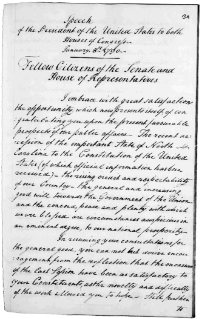 Speech
of the President of the United States to both
Houses of Congress
January 8th 1790.
Fellow Citizens of the Senate and
House of Representatives
I embrace with great satisfaction
the opportunity which now presents itself of con-
gratulating you upon the present favourable
prospects of our public affairs. The recent ac-
cession of the important State of North
Carolina to the Constitution of the United
States (of which official information has been
received) the rising credit and respectability
of our Country, the general and increasing
good will towards the Government of the Union
and the concord, peace and plenty with which
we are blessed are circumstances auspicious in
an eminent degree, to our national prosperity.
In resuming your consultations for
the general good, you can not but derive encou-
ragement from the reflection that the measures
of the last Session have been as satisfactory to
your Constituents, as the novelty and difficulty
of the work allowed you to hope. Still further
to